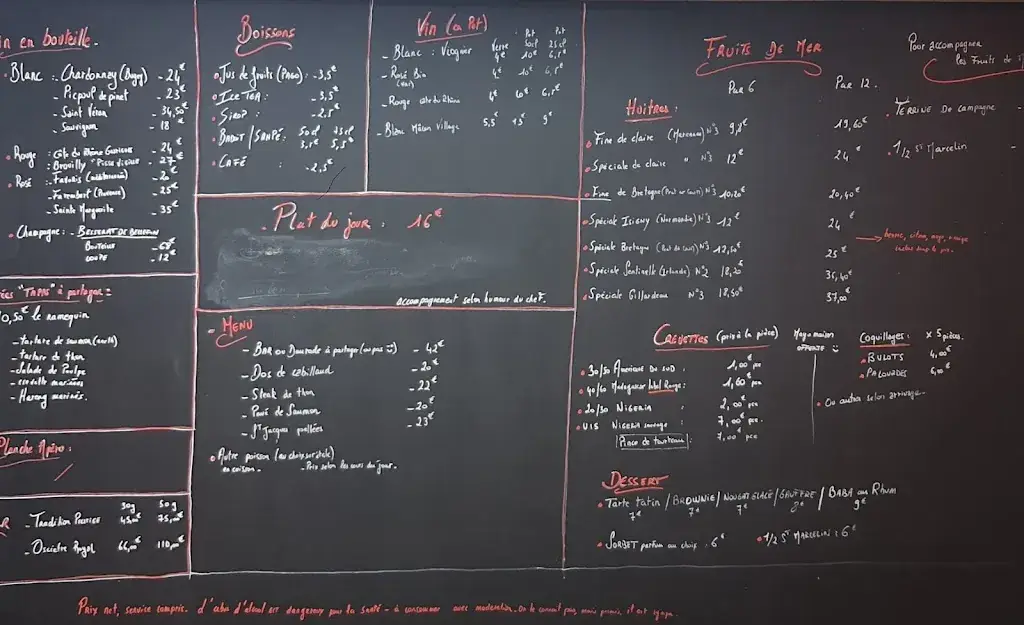 in en bouteille.
Blanc : Chardonnay (Bugey) - 24€
- Picpoul de pinet - 23€
- Saint Véran - 34,50€
- Sauvignon - 18€
Rouge : Côte du Rhône - 24€
: Brouilly "Pisse vieille" - 27€
Rosé : - 20€
- 25€
- Sainte Marguerite - 35€
Champagne : - BESSERAT DE BELLEFON
BOUTEILLE - 68€
COUPE - 12€
ées "TAPAS" à partager :
0,50€ le ramequin
- tartare de saumon
- tartare de thon
- Salade de Poulpe
- marinées
- Hareng marinés.
Planche Apéro :
30g 50g
R - Tradition Prestige 45,00€ 75,00€
- Osciètre Royal 66,00€ 110,00€
Boissons
Jus de fruits (PAGO) - 3,5€
ICE TEA : - 3,5€
SIROP : - 2,5€
BADOIT / SANPÉ : 50 cl
5,5€
CAFÉ - 2,5€
Vin (a Pot)
Verre Pot 50cl Pot 25cl
- Blanc : Viognier 4€ 10€ 6,5€
- Rosé Bio 4€ 10€ 6,5€
- Rouge côte du Rhône 4€ 10€ 6,5€
- Blanc Mâcon Village 5,5€ 9€
- Plat du jour : 16€
accompagnement selon humeur du chef.
- MENU
- BAR ou Daurade à partager (ou pas ☺) - 42€
- Dos de cabillaud - 20€
- Steak de thon - 22€
- Pavé de Saumon - 20€
- St Jacques poêlées - 23€
Autre poisson (au choix sur étale)
en cuisson. - Prix selon les cours du jour.
FRUITS DE MER
Par 6 Par 12.
Huitres :
Fine de claire (Marennes) N°3 9,8€ 19,60€
Spéciale de claire " N°3 12€ 24€
Fine de Bretagne N°3 10,20€ 20,40€
Spéciale Isigny (Normandie) N°3 12€ 24
Spéciale Bretagne N°3 12,50€ 25€
Spéciale Sentinelle (Irlande) N°2 18,20€ 35,40€
Spéciale Gillardeau N°3 18,50€ 37,00€
Pour accompagner
les Fruits de
- TERRINE DE campagne -
- 1/2 St Marcelin -
CREVETTES (prix à la pièce) Mayo maison
OFFERTE ☺
30/50 Amérique DU SUD : 1,00€ pce
40/60 Madagascar label Rouge : 1,60€ pce
20/30 NIGERIA : 2,00€ pce
U15 NIGERIA sauvage : 7,00€ pce
Pince de tourteau : 7,00€ pce
Coquillages : x 5 pièces.
BULOTS 4,00€
PALOURDES 6,00€
Ou autres selon arrivage.
DESSERT
Tarte tatin / BROWNIE / NOUGAT GLACÉ / GAUFFRE / BABA au Rhum
7€ 7€ 7€ 8€ 9€
SORBET parfum au choix : 6€
1/2 St MARCELIN : 6€
Prix net, service compris. L'abu d'alcool est dangereux pour la santé - à consommer avec modération. On le connait pas, mais promis, il est sympa.